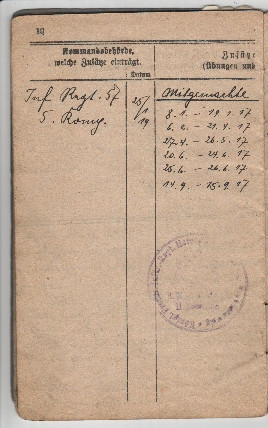 12
Kommandobehörde,
welche Zusätze einträgt.
Datum
Zusätze
(Übungen und
Inf. Regt. 57
5. Komp.
25/
19
Mitgemachte
8.1. – 19.1.17
6.2. – 21.4.17
27.4. – 26.5.17
20.6. – 24.6.17
25.6. – 26.6.17
14.9. – 15.9.17